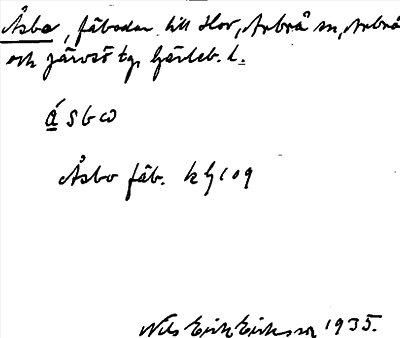 Åsbo, fäbodar till Hov, Arbrå sn, Arbrå
och Järvsö tg, Gävleb. l.
åsbω
Åsbo fäb. kG 109
Nils Erik Eriksson 1935.